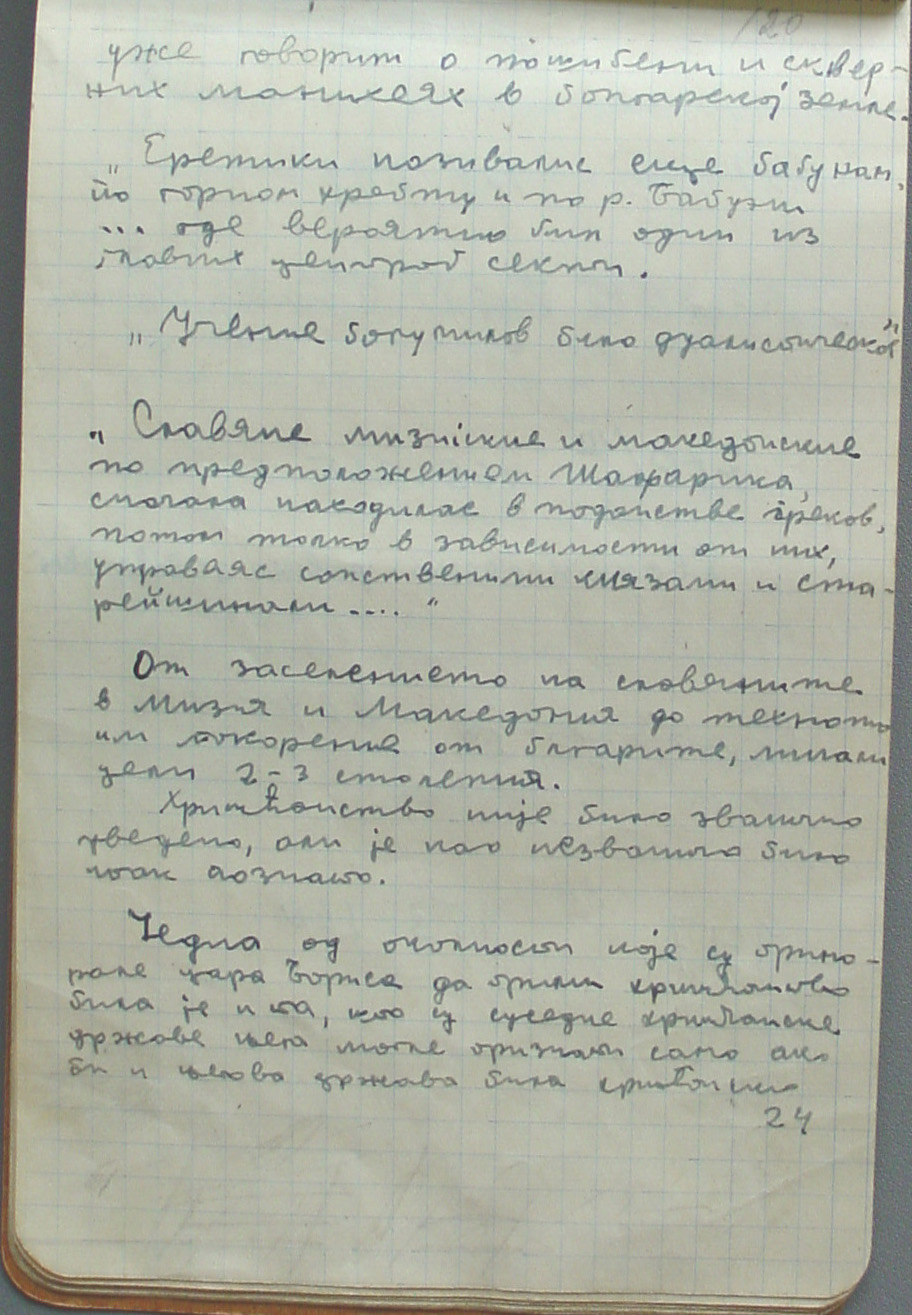 120
уже говорит о
них манихеях в болгарској земле.
„Еретики називалис еще бабунам,
по горном хребту и по р. Бабуни
... где вероятно бил один из
главних центроб секти.
„Учение богумилов било дуалистическоя"
„Славяне мизиіские и македонские
по предположением Шафарика,
сначала находилас в подонстве греков,
потом толко в зависимости от них,
управаяс сопственими князами и ста-
рейшинами...."
От заселението на словяните
в Мизия и Македония до техното
им покорение от блгарите, минали
цели 2-3 столетия.
Хришћанство није било званично
уведено, али је као незванично било
ипак познато.
Једна од околности које су прино-
рале цара Бориса да прими хришћанство
била је и та, што су суседне хришћанске
државе њега могле признати само ако
би и његова држава била хришћанска
24